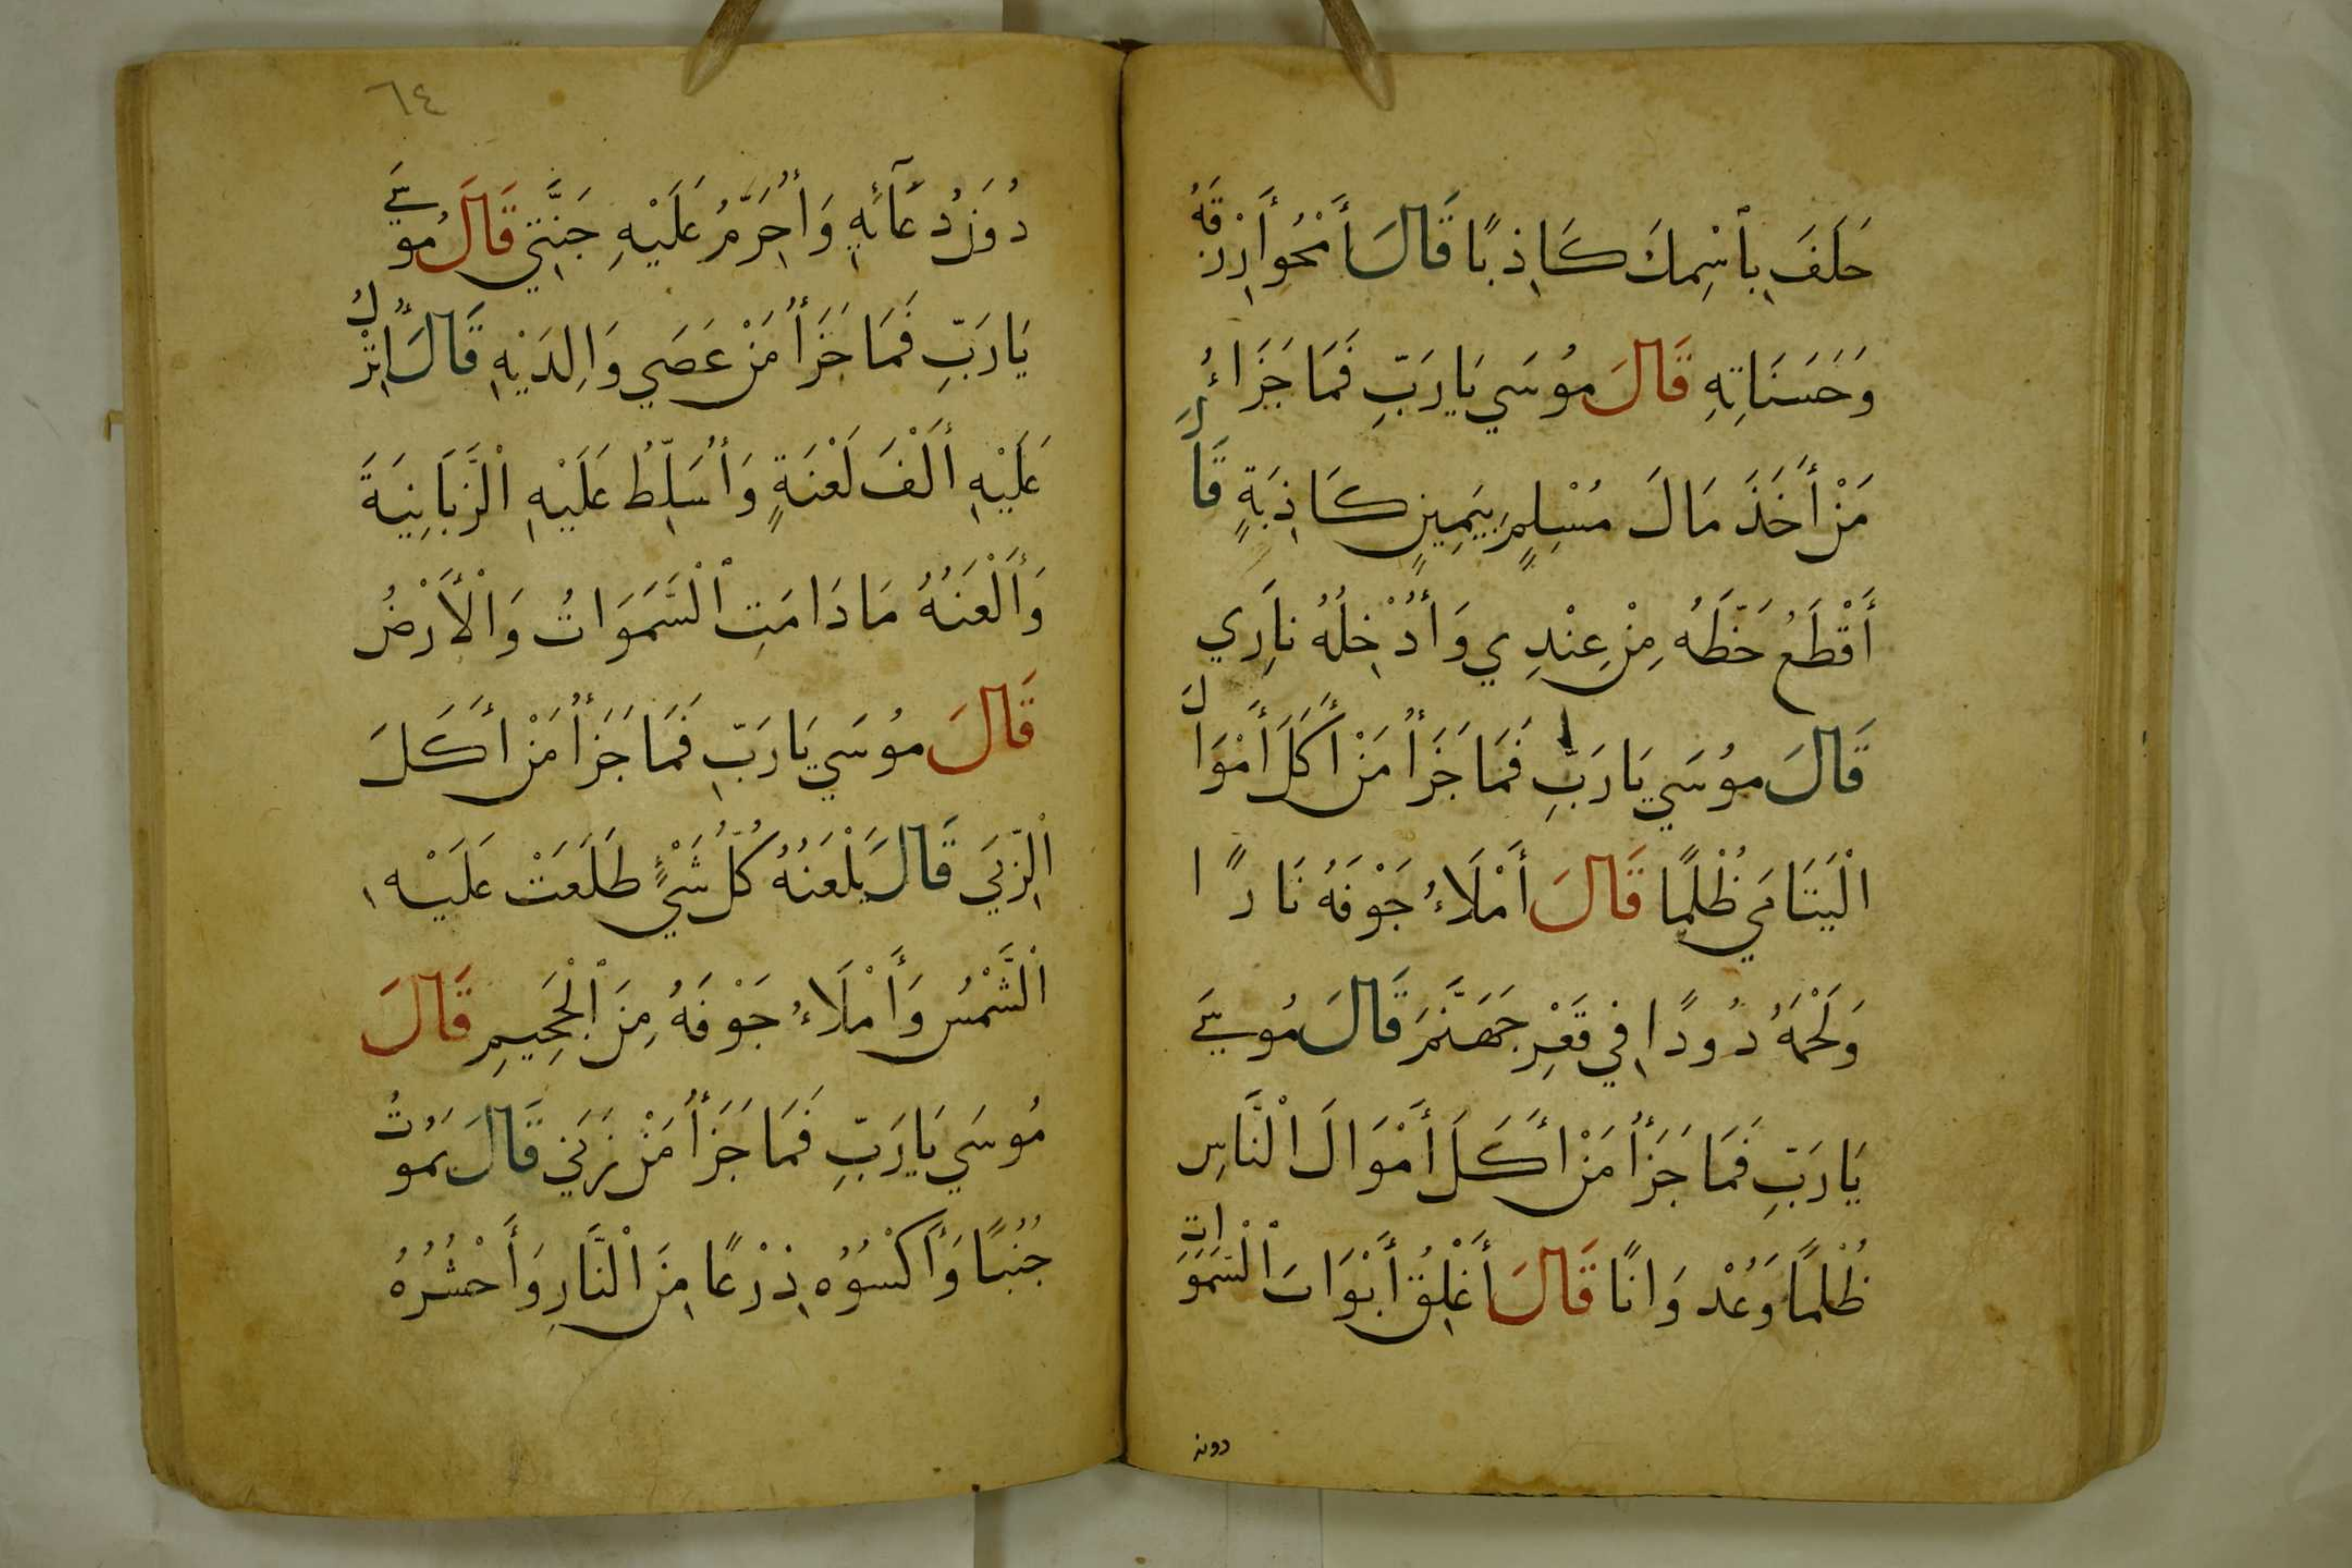 حَلَفَ بِٱسْمِكَ كَاذِبًا قَالَ أَمْحُوا رِزْقَهُ
وَحَسَنَاتِهِ قَالَ مُوسَي يَا رَبِّ فَمَا جَزَاءُ
مَنْ أَخَذَ مَالَ مُسْلِمٍ بِيَمِينٍ كَاذِبَةٍ قَالَ
أَقْطَعُ حَظَّهُ مِنْ عِنْدِي وَأُدْخِلُهُ نَارِي
قَالَ مُوسَي يَا رَبِّ فَمَا جَزَأُ مَنْ أَكَلَ أَمْوَالَ
الْيَتَامَي ظُلْمًا قَالَ أَمْلَاءُ جَوْفَهُ نَارًا
وَلَحْمَهُ دُودًا فِي قَعْرِ جَهَنَّمَ قَالَ مُوسَي
يَا رَبِّ فَمَا جَزَأُ مَنْ أَكَلَ أَمْوَالَ الْنَّاسِ
ظُلْمًا وَعُدْوَانًا قَالَ أَغْلِقُ أَبْوَابَ ٱلْسَّمَوَاتِ
دونه
٦٤
دُونَ دُعَآئِهِ وَأُحَرِّمُ عَلَيْهِ جَنَّتِي قَالَ مُوسَي
يَا رَبِّ فَمَا جَزَأُ مَنْ عَصَي وَالِدَيْهِ قَالَ أُنْزِلُ
عَلَيْهِ أَلْفَ لَعْنَةٍ وَأُسَلِّطُ عَلَيْهِ الْزَّبَانِيَةَ
وَأَلْعَنُهُ مَادَامَتِ ٱلْسَّمَوَاتُ وَالْأَرْضُ
قَالَ مُوسَي يَا رَبِّ فَمَا جَزَأُ مَنْ أَكَلَ
الْرِّبَي قَالَ يَلْعَنُهُ كُلُّ شَيْءٍ طَلَعَتْ عَلَيْهِ
الْشَّمْسُ وَأَمْلَاءُ جَوْفَهُ مِنَ ٱلْجَحِيمِ قَالَ
مُوسَي يَا رَبِّ فَمَا جَزَأُ مَنْ زَنَي قَالَ يَمُوتُ
جُنُبًا وَأَكْسُوُهِ ذِرْعًا مِنَ الْنَّارِ وَأَحْشُرُهُ